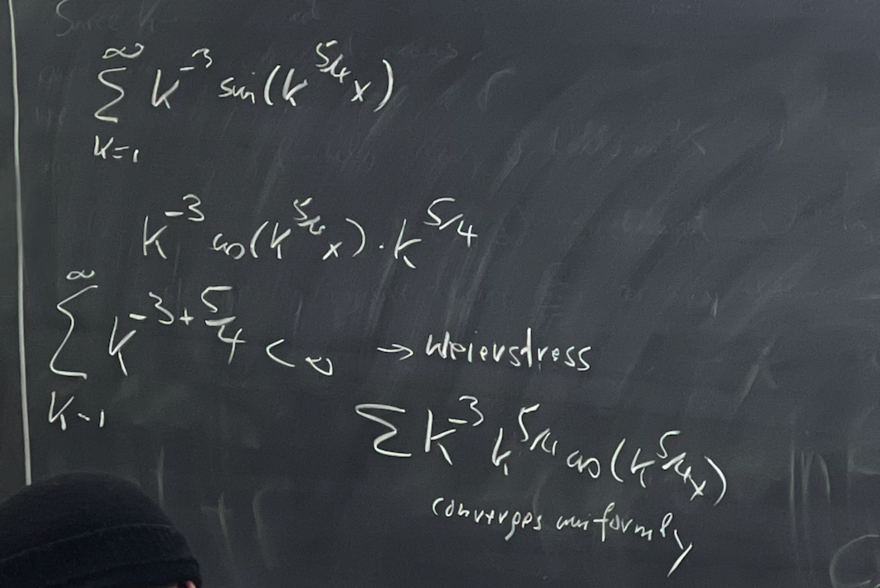 ∞
∑ k⁻³ sin(k^{5/4} x)
k=1
k⁻³ cos(k^{5/4} x) · k^{5/4}
∞
∑ k^{-3+5/4} < ∞ → Weierstress
k=1
∑ k⁻³ k^{5/4} cos(k^{5/4} x)
converges uniformly